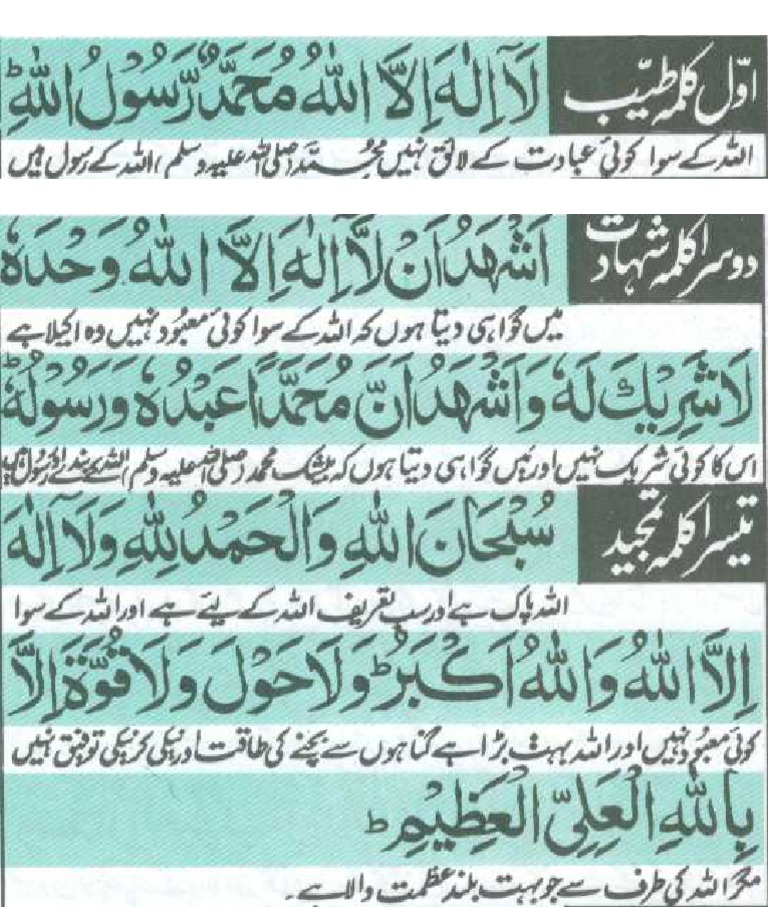 اوّل کلمہ طیّب لَآ اِلٰهَ اِلَّا اللهُ مُحَمَّدٌ رَّسُوْلُ اللهِ ؕ
اللہ کے سوا کوئی عبادت کے لائق نہیں محمّد (صلی اللہ علیہ وسلم) اللہ کے رسول ہیں
دوسرا کلمہ شہادت اَشْهَدُ اَنْ لَّآ اِلٰهَ اِلَّا اللهُ وَحْدَهٗ
میں گواہی دیتا ہوں کہ اللہ کے سوا کوئی معبُود نہیں وہ اکیلا ہے
لَا شَرِيْكَ لَهٗ وَاَشْهَدُ اَنَّ مُحَمَّدًا عَبْدُهٗ وَرَسُوْلُهٗ ؕ
اس کا کوئی شریک نہیں اور میں گواہی دیتا ہوں کہ بیشک محمد (صلی اللہ علیہ وسلم) اللہ کے بندے اور رسول ہیں
تیسرا کلمہ تمجید سُبْحَانَ اللهِ وَالْحَمْدُ لِلّٰهِ وَلَآ اِلٰهَ
اللہ پاک ہے اور سب تعریف اللہ کے لیئے ہے اور اللہ کے سوا
اِلَّا اللهُ وَاللهُ اَكْبَرُ ؕ وَلَا حَوْلَ وَلَا قُوَّةَ اِلَّا
کوئی معبُود نہیں اور اللہ بہت بڑا ہے گناہوں سے بچنے کی طاقت اور نیکی کرنیکی توفیق نہیں
بِاللهِ الْعَلِيِّ الْعَظِيْمِ ؕ
مگر اللہ کی طرف سے جو بہت بلند عظمت والا ہے۔